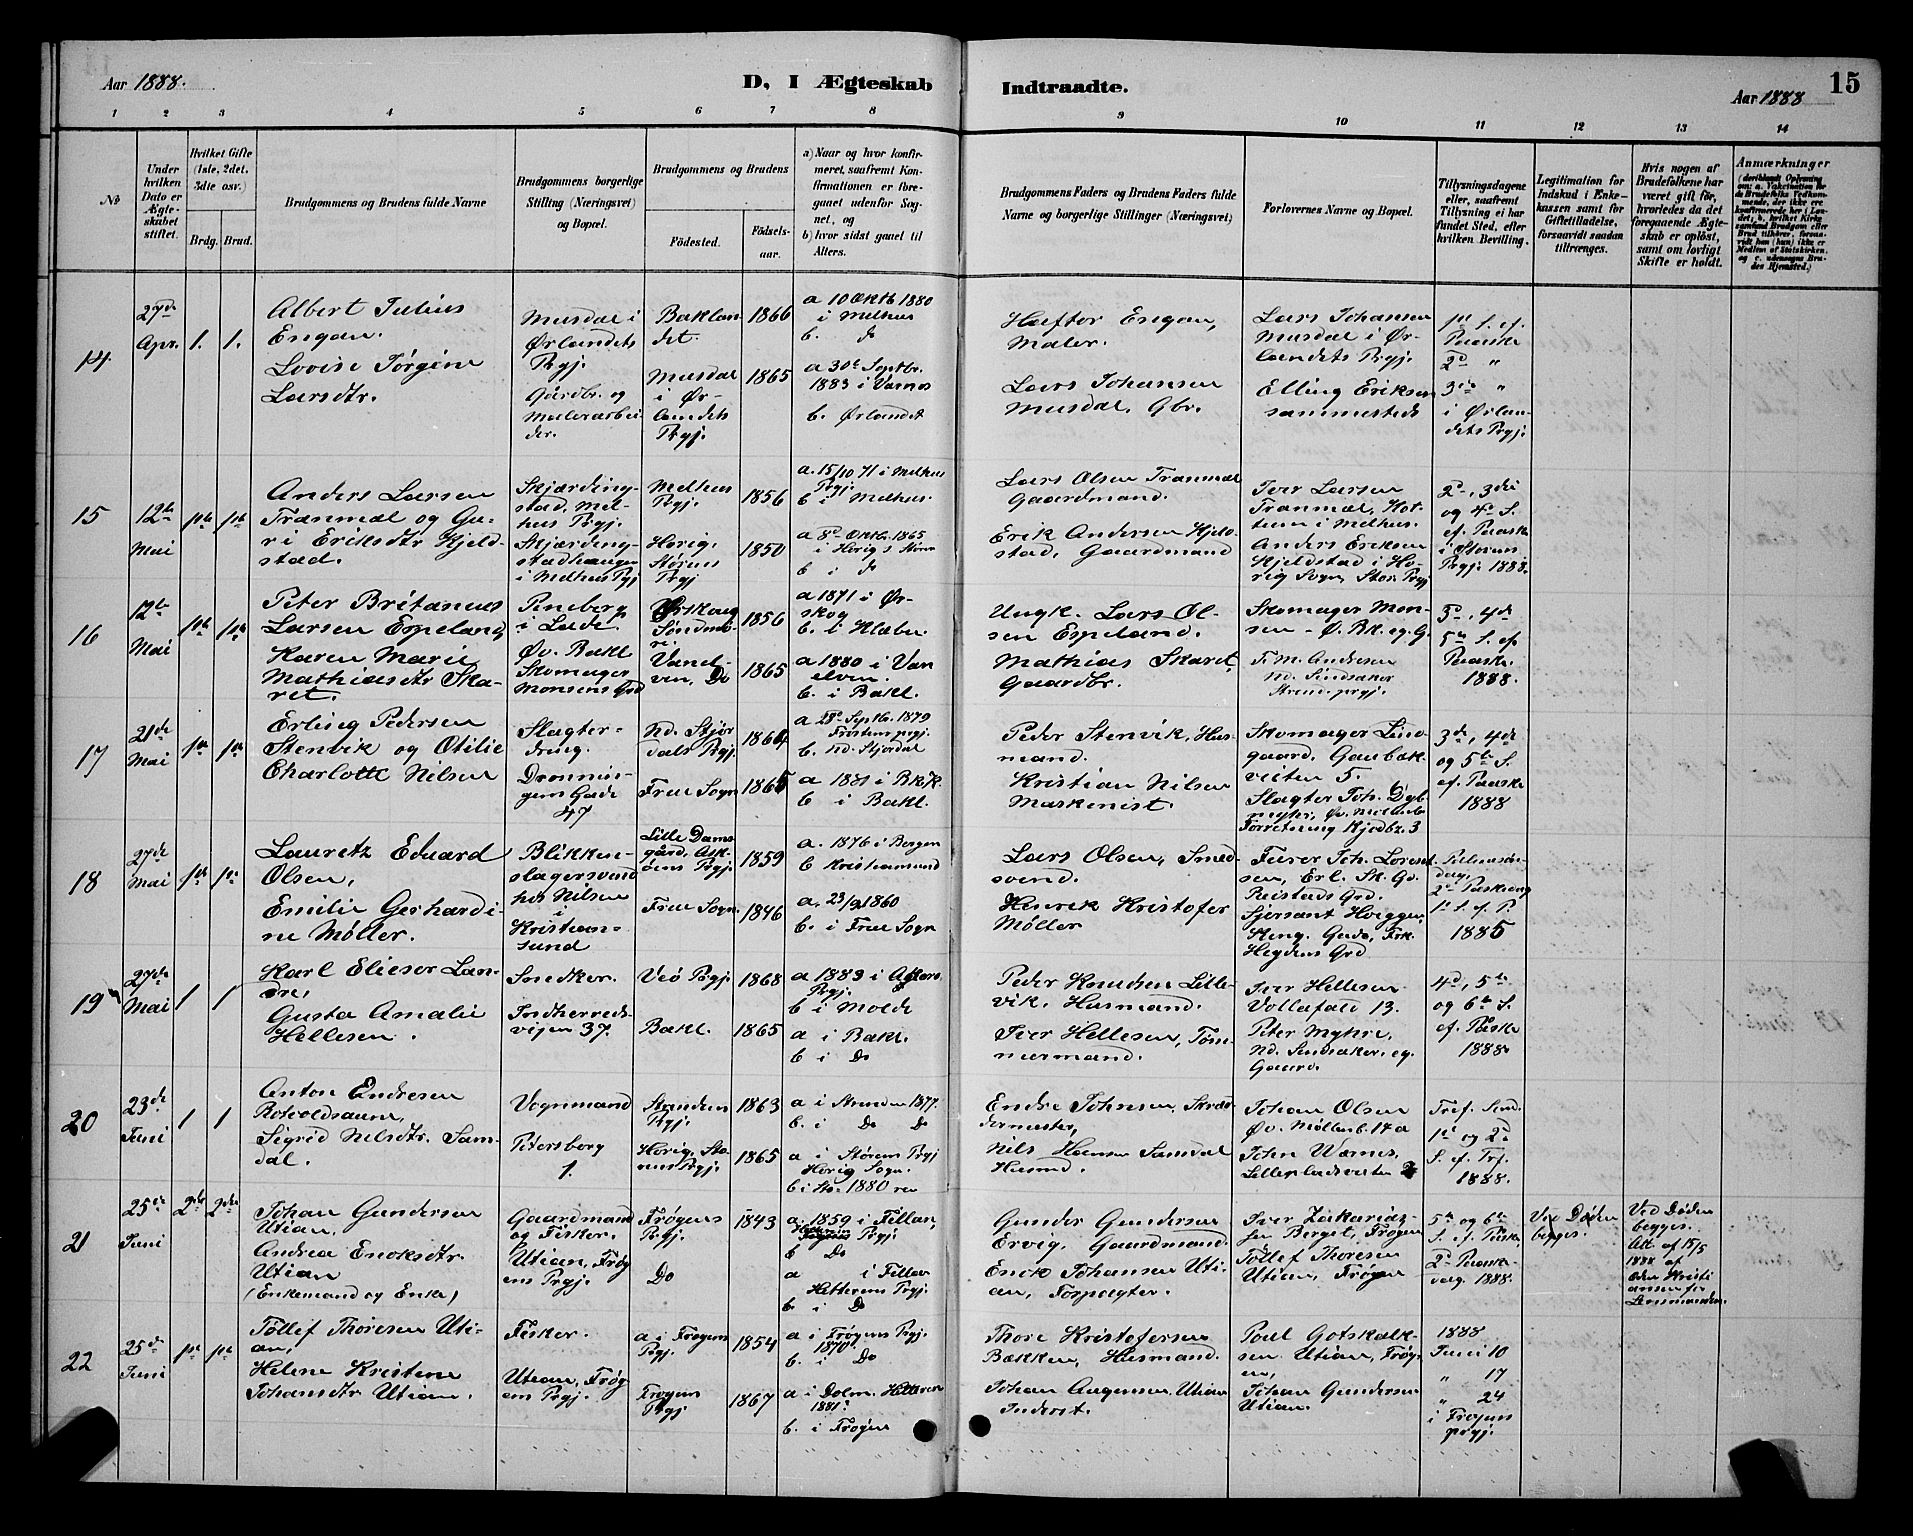 Aar 1888.
D, I Ægteskab
Indtraadte.
Aar 1888
15
1 2 3 4 5 6 7 8 9 10 11 12 13 14
No
Under hvilken Dato er Ægteskabet stiftet.
Hvilket Gifte (1ste, 2det, 3die osv.)
Brdg.
Brud.
Brudgommens og Brudens fulde Navne
Brudgommens borgerlige Stilling (Næringsvei) og Bopæl.
Brudgommens og Brudens
Fødested.
Fødselsaar.
a) Naar og hvor konfirmeret, saafremt Konfirmationen er foregaaet udenfor Sognet, og
b) hvor sidst gaaet til Alters.
Brudgommens Faders og Brudens Faders fulde Navne og borgerlige Stillinger (Næringsvei)
Forlovernes Navne og Bopæl.
Tillysningsdagene eller, saafremt Tillysning ei har fundet Sted, efter hvilken Bevilling.
Legitimation for Indskud i Enkekassen samt for Giftetilladelse, forsaavidt saadan tiltrænges.
Hvis nogen af Brudefolkene har været gift før, hvorledes da det foregaaende Ægteskab er opløst, samt om lovligt Skifte er holdt.
Anmærkninger
14
27de
Apr.
1. 1.
Albert Julius
Engan.
Lovise Jørgine
Larsdtr.
Musdal i
Ørlandets
Prgj.
Gårdbr. og
Malerarbei-
der.
Baklan-
det.
1866
Musdal
i Ør-
landets
Prgj.
1865
a 10 Oktb 1880
i Melhus
b. do
a 30te Septbr.
1883 i Værnes
b. Ørlandet
Haftor Engan,
Maler.
Lars Johansen
Musdal, Gbr.
Lars Johansen
Musdal i Ør-
landets Prgj.
Elling Eriksen
sammesteds
1ste S. ef.
Paaske
2d "
3die "
i Ørlan-
dets Prgj.
15
12te
Mai
1ste 1ste
Anders Larsen
Tranmæl og Gu-
ri Eriksdtr Kjeld-
stad.
Skjærding-
stad, Mel-
hus Prgj.
Skjærding-
stadhaugen
i Melhus Prgj
Melhus
Prgj.
1856
Horig,
Størens
Prgj
1850
a. 15/10 71 i Melhus
Prgj.
b i Melhus.
a 8de Oktbr. 1865
i Horig s Støren
b i do
Lars Olsen Tranmæl
Gaardmand.
Erik Andersen Kjeld-
stad, Gaardmand
Iver Larsen
Tranmæl,
i Melhus.
Anders Eriksen
Kjeldstad i Ho-
rig Sogn, Stør. Prgj
2d, 3die
og 4de S.
ef. Paaske
i Størens
Prgj. 1888.
16
12te
Mai
1ste 1ste
Peter Britanius
Larsen Empeland
Karen Marie
Mathiasdtr Ska-
ret.
Peneberg
i Lade.
Øv. Bakl
Skomager
Monsens Grd
Ørskoug
Søndmø-
re.
1856
Vanel-
ven, Do
1865
a 1871 i Ør-
skog
b. i Klæbu.
a 1880 i Van
elven.
b. i Bakl.
Ungk. Lars Ol-
sen Empeland.
Mathias Skaret,
Gaardbr.
Skomager Mon-
sen - Ø. Bk. eg. G.
T. M. Andresen
Nd. Sindsaker
Strind. prgj.
3d, 4de
5te S. ef.
Paaske.
1888.
17
21de
Mai
1ste 1ste
Erling Pedersen
Stenvik og Otilie
Charlotte Nilsen
Slagter-
dreng.
Dronnin-
gens Gade
47
Nd. Stjør
dals Prgj.
1864
Frue Sogn
1865
a 28de Septbr. 1879
Frostens prgj.
b. Nd. Stjørdal
a 1881 i Bkl K.
b i Bakl.
Peder Stenvik, Hus-
mand.
Kristian Nilsen
Maskinist.
Skomager Lind-
gaard, Gaubæk-
veiten 5.
Slagter Joh. Dyb-
myhr, Øv. Møllenb
Forretning Kjødbz. 3
3de, 4de
og 5te S.
ef. Paaske
1888
18
27de
Mai
1ste 1ste
Lauretz Eduard
Olsen,
Emilie Gerhardi-
ne Møller.
Blikken-
slagersvend
hos Nilsen
i
Kristian-
sund
Lille Dams-
gård, Ask-
øens Prgj.
1859
Frue Sogn
1846
a. 1876 i Bergen
b Kristiansund
a. 23/9 1860
b. i Frue Sogn
Lars Olsen, Smed-
svend.
Henrik Kristofer
Møller
Furer Joh. Lorent
sen, Erl. Sk. Gd.
Reistads Grd.
Sjersant Hoiggen,
Kong. Gade, Frk.
Hegdens Grd
2d Paaskedag
1ste S. ef. P.
1885
19
27de
Mai
1 1
Karl Elieser Lan-
dre,
Gusta Amalie
Hellesen.
Snedker.
Indherreds-
vejen 37.
Veø Prgj.
1868
Bakl.
1865
a 1883 i
Prgj.
b i Molde
a i Bakl.
b i Do
Peder Knudsen Lille-
vik, Husmand.
Iver Hellesen, Tøm-
mermand.
Iver Hellesen
Vollafald 13.
Peter Myhre,
Nd. Sindsaker, eg.
Gaard.
4d, 5te
og 6te S.
ef. Påske
1888.
20
23de
Juni
1 1
Anton Endresen
Rotvoldsaune,
Sigrid Nilsdtr. Sam-
dal.
Vognmand
Petersborg
1.
Strindens
Prgj.
1863
Horig, Stø-
rens Prgj.
1865
a i Strinden 1877.
b. i Do Do
a i Størens Prgj
Horig Sogn.
b i Stø. 1880 ren
Endre Johnsen, Skræd-
dermester,
Nils Hansen Samdal
Husmd.
Johan Olsen
Øv. Møllenb. 14 a
John Wærnes,
Tref. Sønd.
1ste og 2d
S. ef. Trf.
1888.
21
25de
Juni
2det 2det
Johan Gundersen
Utian,
Andrea Enoksdtr.
Utian
(Enkemand og Enke)
Gaardmand
og Fisker.
Utian, Frøy
ens Prgj.
Frøyens
Prgj.
1843
Do
a. 1859 i Fillan,
Hitterens Prgj.
b Do
a i Fillan
Hitterens Prgj.
b. i Do
Gunder Gundersen
Ervig, Gaardmand.
Enok Johansen Uti-
an, Forpagter.
Iver Zakarias-
sen Berget, Frøyen
Tollef Thoresen
Utian, Frøyen
5te og 6te
S. ef. Påske,
2d Paaske-
dag. 1888.
Ved Døden
begges.
Ved Døden
begges.
Att. af 15/5
1888 af
Kristi
ansen for
Lensmanden.
22
25de
Juni
1ste 1ste
Tollef Thoresen Uti-
an,
Helene Kristine
Johansdtr Utian.
Fisker.
Utian, Frøy
ens Prgj.
a i Frøyens
Prgj.
1854
Frøyens
Prgj
1867
a i Frøyens Prgj.
1870
b. i Do
a i Dolm. Hitteren
1881
b. i Frøyen
Thore Kristofersen
Bækken, Husmand.
Johan Augensen Utian
Inderst.
Poul Gotskalk-
sen Utian, Frøy-
en,
Johan Gundersen
Utian.
1888
Juni 10
" 17
" 24
i Frøyens
prgj.